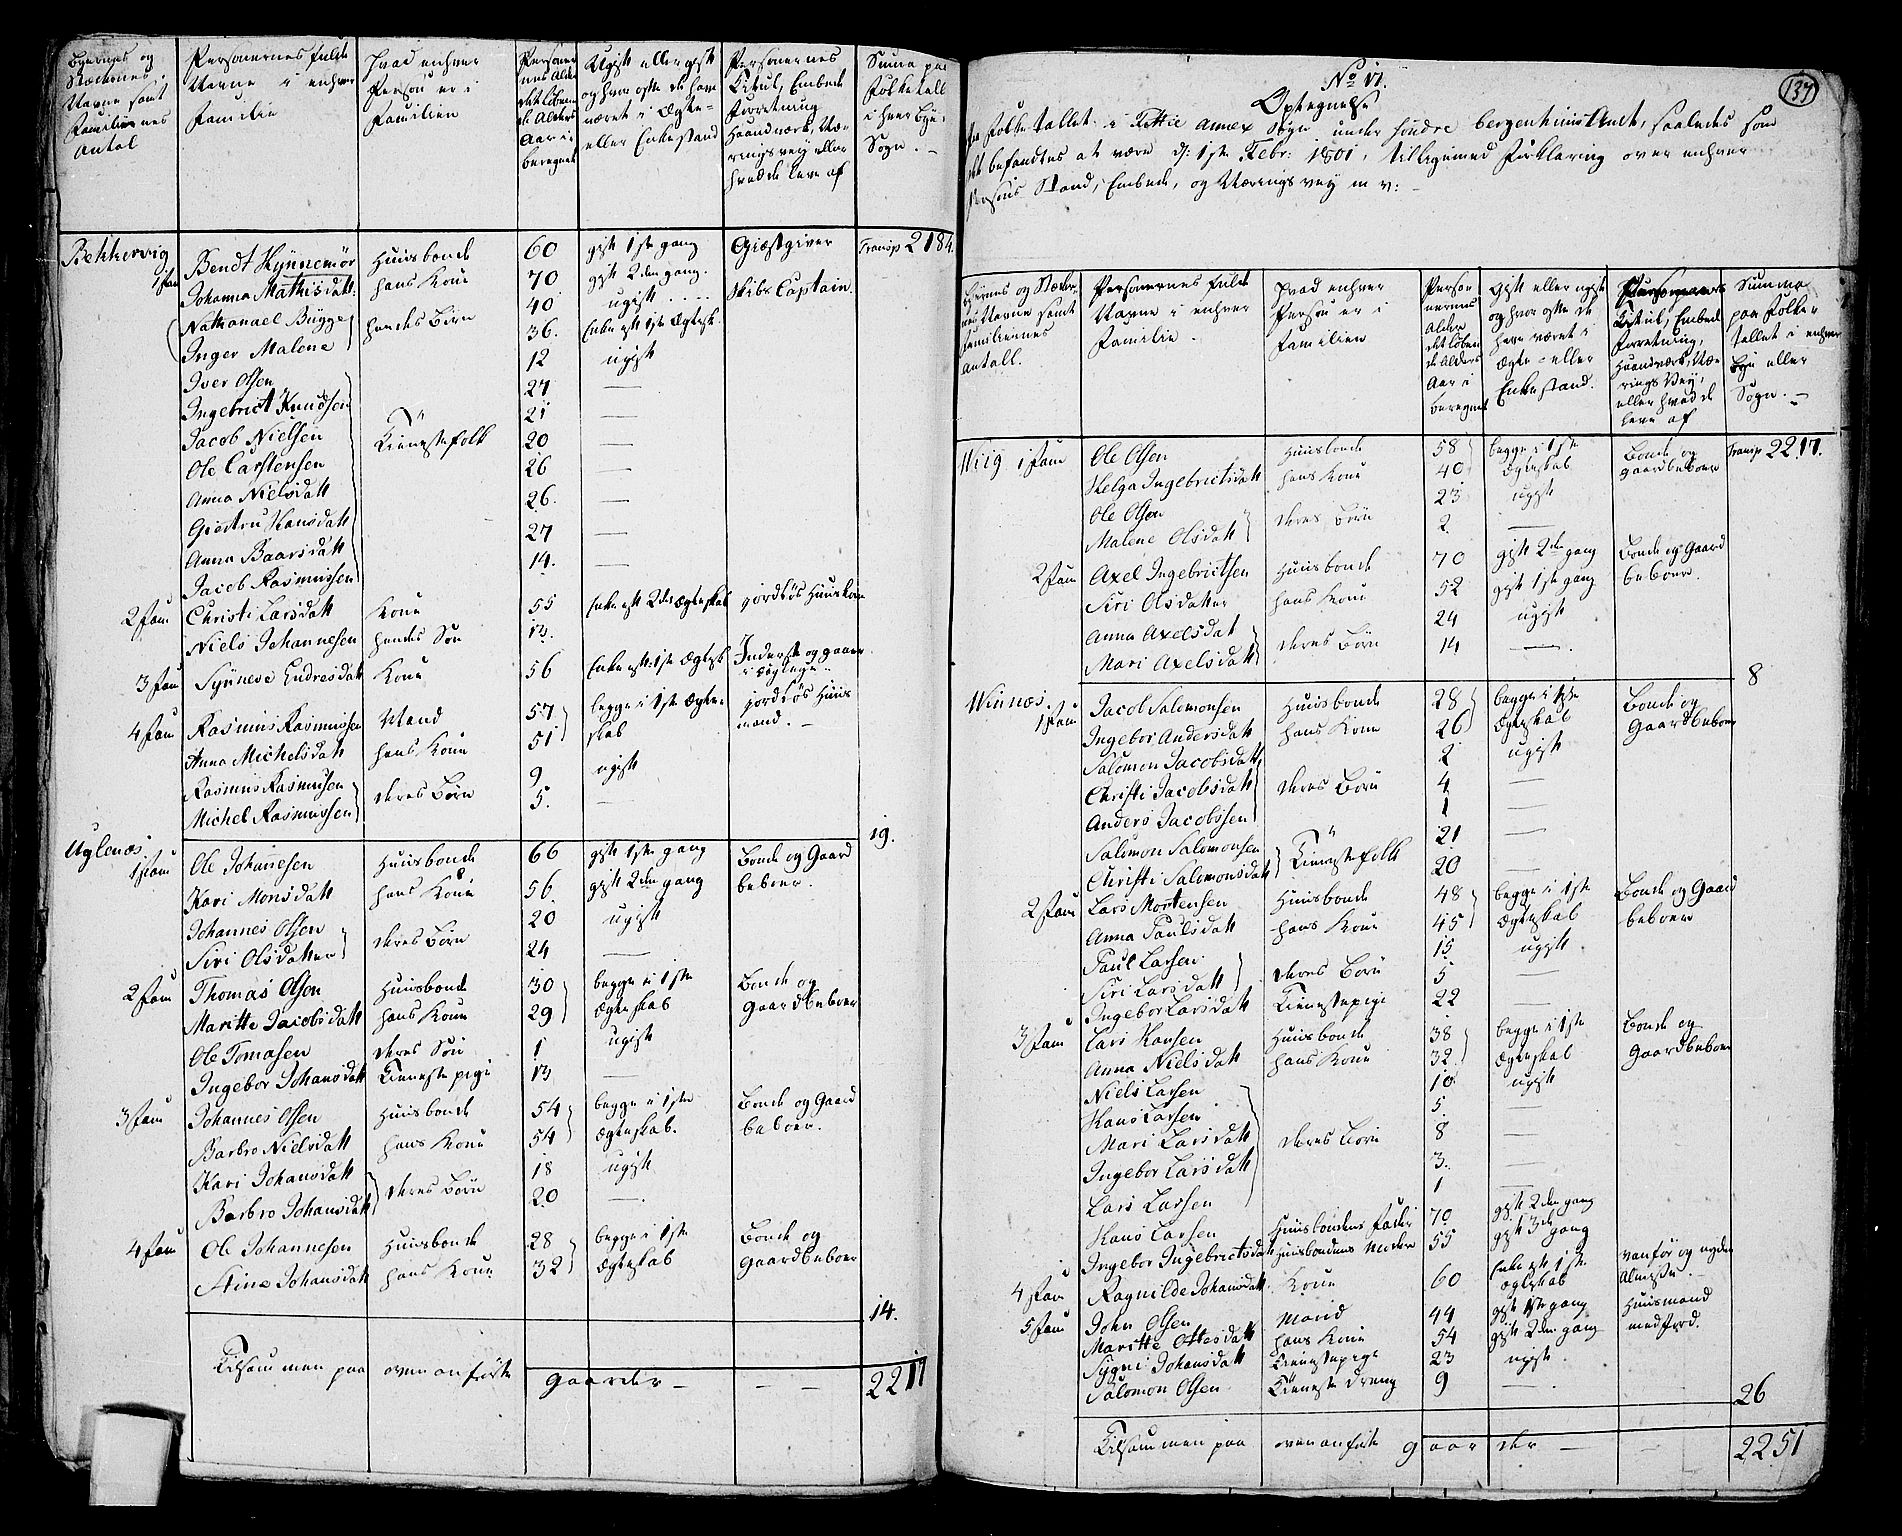 Byernes og
Stædernes
Navne samt
Familiernes
Antal
Personernes fulde
Navne i enhver
Familie
Hvad enhver
Person er i
Familien
Personer
nes Alder
det løben
de Alders
Aar i
beregnet
Ugift eller gift
og hvor ofte de have
været i Ægte-
eller Enkestand
Personernes
Titul, Embede
Forretning
Haandværk, Næ-
ringsvey eller
hvad de leve af
Summa paa
Folketall
i hver Bye,
Sogn.
Bekkervig 1 Fam Bendt Hynnemør Huusbonde 60 gift 1ste gang Giæstgiver Transp 2184.
Johanna Mathisdatt: hans Kone 70 gift 2den gang.
Nathanael Bugge hendes Børn 40 ugift Skibs Captain.
Inger Malene 36. Enke eft 1ste Ægtesk.
Iver Olsen 12 ugift
Ingebrict Knudsen 27 —
Jacob Nielsen Tienestefolk 21 —
Ole Carstensen 20 —
Anna Nielsdatt 26 —
Giertru Hansdatt 26. —
Anna Baarsdatt 27 —
Jacob Rasmussen 14. —
2 Fam Christi Larsdatt Kone 55 Enke eft 2det Ægteskab jordløs Huuskone
Niels Johannesen hendes Søn 13.
3 Fam Synneve Endresdatt Kone 56 Enke eft: 1ste Ægtesk Inderst og
4 Fam Rasmus Rasmussen Mand 57 begge i 1ste Ægte- jordløs Huus
Anna Michelsdatt hans Kone 51 skab mand.
Rasmus Rasmussen deres Børn 9 ugift
Michel Rasmussen 5. —
19.
Uglenæs 1 Fam Ole Johannesen Huusbonde 66 gift 1ste gang Bonde og Gaard
Kari Monsdatt hans Kone 56. gift 2den gang beboer.
Johannes Olsen deres Børn 20 ugift
Siri Olsdatter 24 —
2 Fam Thomas Olsen Huusbonde 30 begge i 1ste Bonde og
Maritte Jacobsdatt hans Kone 29 Ægteskab Gaardbeboer
Ole Tomasen deres Søn 1 ugift
Ingebor Johansdatt Tieneste pige 13 —
3 Fam Johannes Olsen Huusbonde 54 begge i 1ste Bonde og Gaard
Barbro Nielsdatt hans Kone 54 Ægteskab. beboer.
Kari Johansdatt deres Børn 18 ugift
Barbro Johansdatt 20 —
4 Fam Ole Johannesen Huusbonde 28 begge i 1ste Bonde og
Stine Johansdatt hans Kone 32 Ægteskab Gaardbeboer
14.
Tilsammen paa ovenanførte gaarder — — — 2217
137
No 17.
Optegnelse
Folke Tallet i Fittie Annex Sogn under Søndre Bergenhuus Amt, saaledes som
det befandtes at være d: 1ste Febr: 1801, tilligemed Forklaring over enhver
Persons Stand, Embede, og Næringsvey m v: —
Byernes og Stæder
nes Navne samt
Familiernes
Antall.
Personernes fulde
Navne i enhver
Familie.
Hvad enhver
Person er i
Familien
Person
nernes
Alder
det løben
de Alders
Aar i
beregnet
Gift eller ugift
og hvor ofte de
have været i
Ægte- eller
Enkestand.
Personernes
Titul, Embede
Forretning,
Haandværk, Næ-
rings Vey,
eller hvad de
leve af
Summa
paa Folke
tallet i enhver
Bye eller
Sogn.
Wiig 1 Fam Ole Olsen Huusbonde 58 begge i 1ste Bonde og Transp 2217.
Helga Ingebrictsdatt hans Kone 40 Ægteskab gaardbeboer
Ole Olsen deres Børn 23 ugift
Malene Olsdatt 2 —
2 Fam Axel Ingebrictsen Huusbonde 70 gift 2den gang Bonde og Gaard
Siri Olsdatter hans Kone 52 gift 1ste gang beboer.
Anna Axelsdat deres Børn 24 ugift
Mari Axelsdatt 14 —
8
Winnæs. 1 Fam Jacob Salomonsen Huusbonde 28 begge i 1ste Bonde og
Ingebor Andersdatt hans Kone 26 Ægteskab Gaardbeboer
Salomon Jacobsdatt 2 ugift
Christi Jacobsdatt deres Børn 4 —
Anders Jacobssen 1 —
Salomon Salomonsen Tienestefolk 21 —
Christi Salomonsdatt 20 —
2 Fam Lars Mortensen Huusbonde 48 begge i 1ste Bonde og Gaard
Anna Paulsdatt hans Kone 45 Ægteskab beboer
Paul Larsen deres Børn 15 ugift.
Siri Larsdatt 5 —
Ingebor Larsdatt Tienestepige 22 —
3 Fam Lars Hansen Huusbonde 38 begge i 1ste Bonde og
Anna Nielsdatt hans Kone 32 Ægteskab Gaardbeboer
Niels Larsen 10 ugift
Hans Larsen 5. —
Mari Larsdatt deres Børn 8 —
Ingebor Larsdatt 3. —
Lars Larsen 1 —
Hans Larsen Huusbondens Fader 70 gift 2den gang
Ingebor Ingebrictsdatt Huusbondens Moder 55 gift 3de gang
4 Fam Ragnilde Johansdatt Kone 60 Enke eft 1ste Ægteskab vanfør og nyder Almisse.
5 Fam John Olsen Mand 44 gift 1ste gang Huusmand
Maritte Ottesdatt hans Kone 54 gift 2den gang med Jord.
Sygni Johansdatt Tienestepige 23 ugift.
Salomon Olsen Tieneste dreng 9 —
26
Tilsammen paa ovenanførte gaarder — — 2251